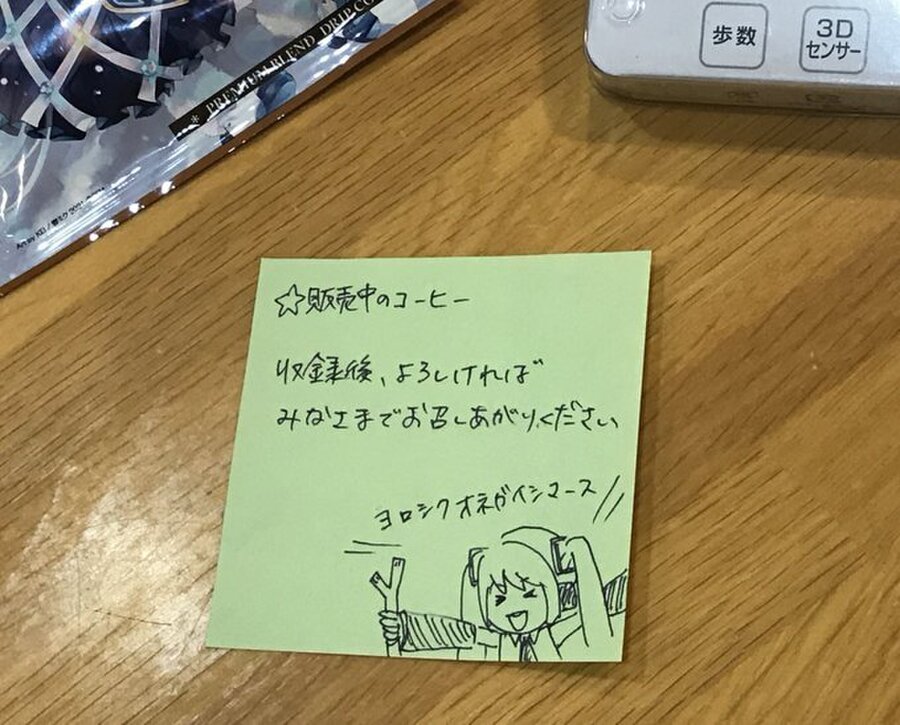 * PREMIUM BLEND DRIP CO
歩数
3D
センサー
Art by KEI /
☆販売中のコーヒー
収録後、よろしければ
みなさまでお召しあがりください
ヨロシクオネガイシマース